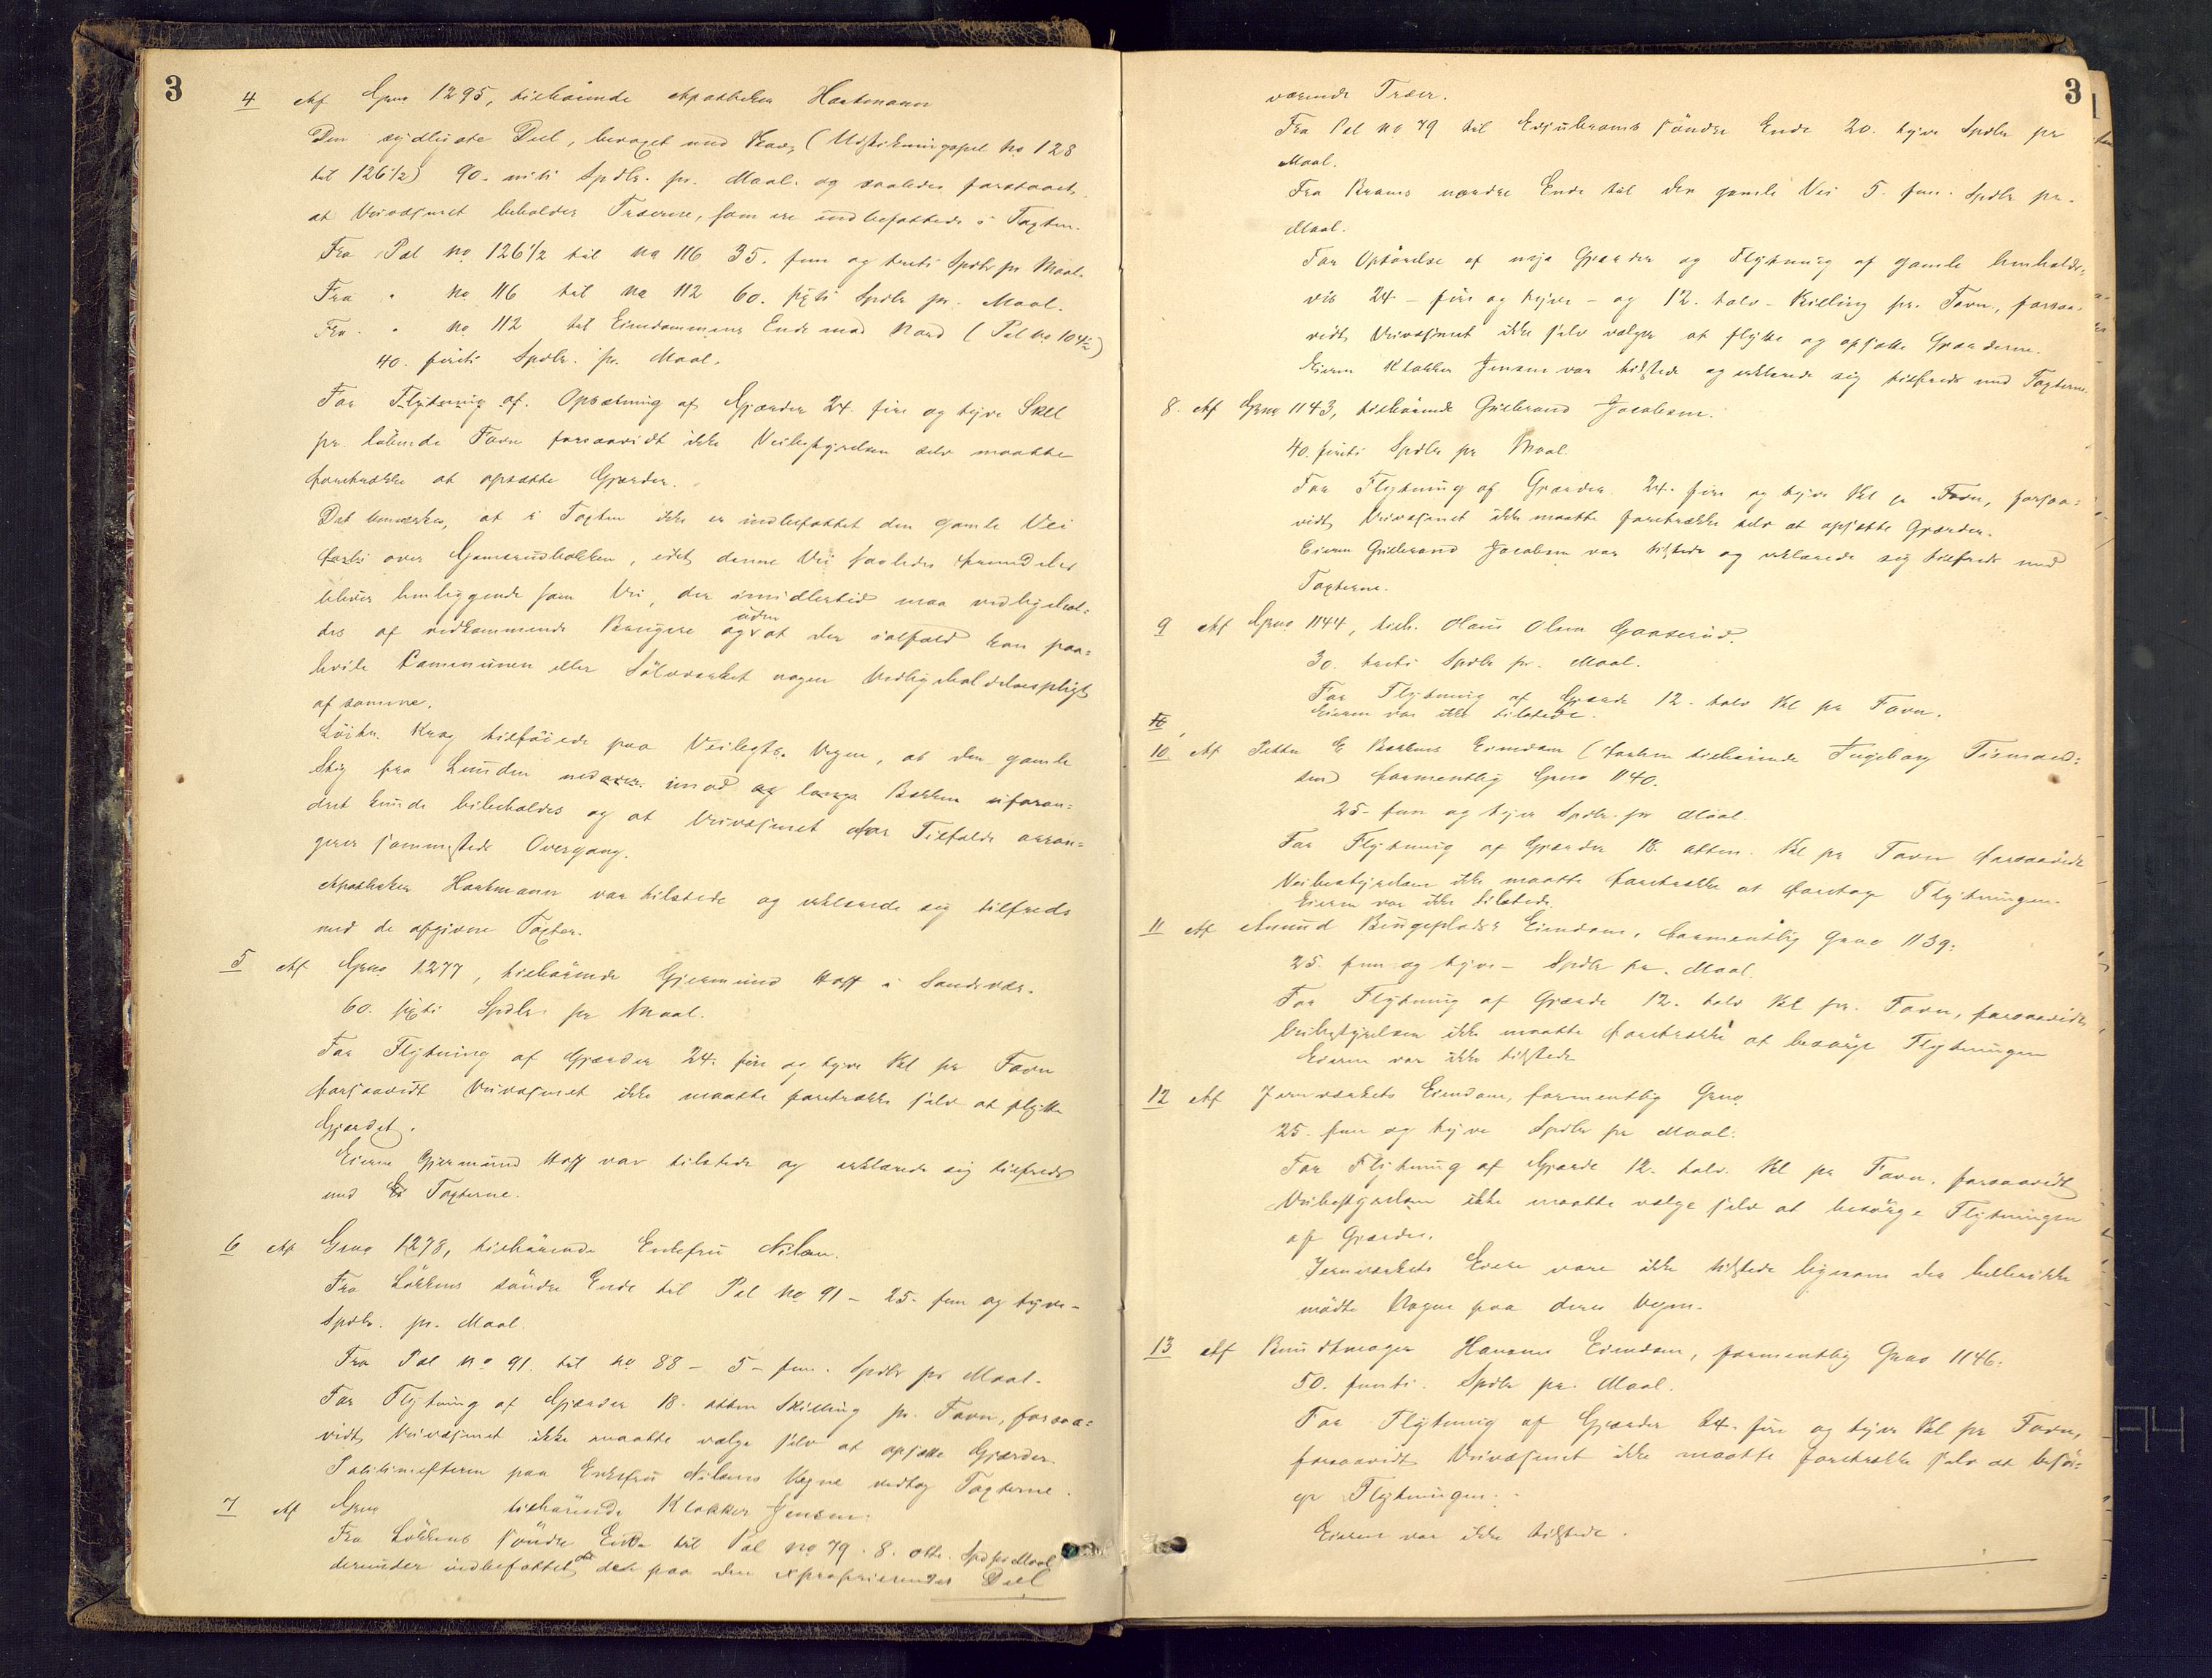 3
4 Af Grno 1295, tilhørende Apotheker Hartmann
Den sydligste Deel, bevoxet med Krat, (Udstikningspæl No 128
til 126 1/2) 90. niti Spdlr. pr. Maal. og saaledes forstaaet,
at Veivæsenet beholder Træerne, som ere indbefattede i Taxten.
Fra Pæl no 126 1/2 til no 116 35. fem og treti Spdlr pr Maal.
Fra " no 116 til no 112 60. sexti Spdlr pr. Maal.
Fra " no 112 til Eiendommens Ende mod Nord (Pæl no 104 1/2)
40. firti Spdlr. pr. Maal.
For Flytning af. Opsætning af Gjærder 24. fire og tyve Skll
pr. løbende Favn forsaavidt ikke Veibestyrelsen selv maatte
foretrække at opsætte Gjærder.
Det bemærkes, at i Taxten ikke er indbefattet den gamle Vei
forbi over Gamsrudbakken, idet denne Vei saaledes fremdeles
bliver henliggende som Vei, der imidlertid maa vedligehol-
des af vedkommende Brugere og uden at der ialfald kan paa-
hvile Kommunen eller Sølvværket nogen Vedligeholdelsespligt
af samme.
Løitn. Krag tilføiede paa Veilegts. Vegne, at den gamle
Stig fra Lunden nedover imod og langs Bækken uforan-
dret kunde bibeholdes og at Veivæsenet for Tilfælde arran-
gerer sammesteds Overgang.
Apotheker Hartmann var tilstede og erklærede sig tilfreds
med de afgivne Taxter.
5 Af Grno 1277, tilhørende Gjermund Hoff i Sandsvær.
60. sexti Spdlr pr Maal.
For Flytning af Gjærder 24. fire og tyve Skl pr Favn
forsaavidt Veivæsenet ikke maatte foretrække selv at flytte
Gjærdet.
Eieren Gjermund Hoff var tilstede og erklærede sig tilfreds
med Taxterne.
6 Af Grno 1278, tilhørende Enkefru Nilsen.
Fra Løkkens søndre Ende til Pæl No 91 - 25. fem og tyve -
Spdlr. pr. Maal.
Fra Pæl no 91. til no 88 - 5 - fem. Spdlr pr Maal.
For Flytning af Gjærder 18. atten Skilling pr. Favn, forsaa-
vidt Veivæsenet ikke maatte vælge selv at opsætte Gjærder
Politimesteren paa Enkefru Nilsens Vegne vedtog Taxterne.
7 Af Grno tilhørende Klokker Jensen.
Fra Løkkens søndre Ende til Pæl no 79. 8. otte. Spd pr Maal
derunder indbefattet de paa den exproprierendes Deel
3
værende Træer.
Fra Pæl no 79 til søndre Ende 20. tyve Spdlr pr
Maal.
Fra nordre Ende til den gamle Vei 5. fem. Spdlr pr.
Maal.
For Opførelse af nye Gjærder og Flytning af gamle henholds-
vis 24 - fire og tyve - og 12. tolv - Skilling pr. Favn, forsaa-
vidt Veivæsenet ikke selv vælger at flytte og opsætte Gjærderne.
Eieren Klokker Jensen var tilstede og erklærede sig tilfreds med Taxterne.
8. Af Grno 1143, tilhørende Gulbrand Jacobsen.
40. firti Spdlr pr Maal.
For Flytning af Gjærder 24. fire og tyve Skl pr Favn, forsaa-
vidt Veivæsenet ikke maatte foretrække selv at opsætte Gjærder.
Eieren Gulbrand Jacobsen var tilstede og erklærede sig tilfreds med
Taxterne.
9 Af Grno 1144, tilh. Olaus Olsen Gaaserud.
30. treti Spdlr pr. Maal.
For Flytning af Gjærde 12. tolv Skl pr Favn.
Eieren var ikke tilstede.
10
10. Af Petter E Eiendom (forhen tilhørende Ingeborg
formentlig Grno 1140.
25. fem og tyve Spdlr. pr Maal.
For Flytning af Gjærder 18. atten. Skl pr Favn forsaavidt
Veibestyrelsen ikke maatte foretrække at foretage Flytningen.
Eieren var ikke tilstede.
11 Af Amund Bingeplads's Eiendom, formentlig Grno 1139.
25. fem og tyve - Spdlr pr. Maal.
For Flytning af Gjærde 12. tolv Skl pr. Favn, forsaavidt
Veibestyrelsen ikke maatte foretrække at besørge Flytningen
Eieren var ikke tilstede
12 Af Jernværkets Eiendom, formentlig Grno
25. fem og tyve Spdlr pr Maal.
For Flytning af Gjærde 12. tolv. Skl pr Favn. forsaavidt
Veibestyrelsen ikke maatte vælge selv at besørge Flytningen
af Gjærder.
Jernværkets Eiere vare ikke tilstede ligesom der hellerikke
mødte Nogen paa deres Vegne.
13 Af Buudtmager Hansens Eiendom, formentlig Grno 1146.
50. femti. Spdlr pr. Maal.
For Flytning af Gjærder 24. fire og tyve Skl pr Favn,
forsaavidt Veivæsenet ikke maatte foretrække selv at besør-
ge Flytningen.
Eieren var ikke tilstede.